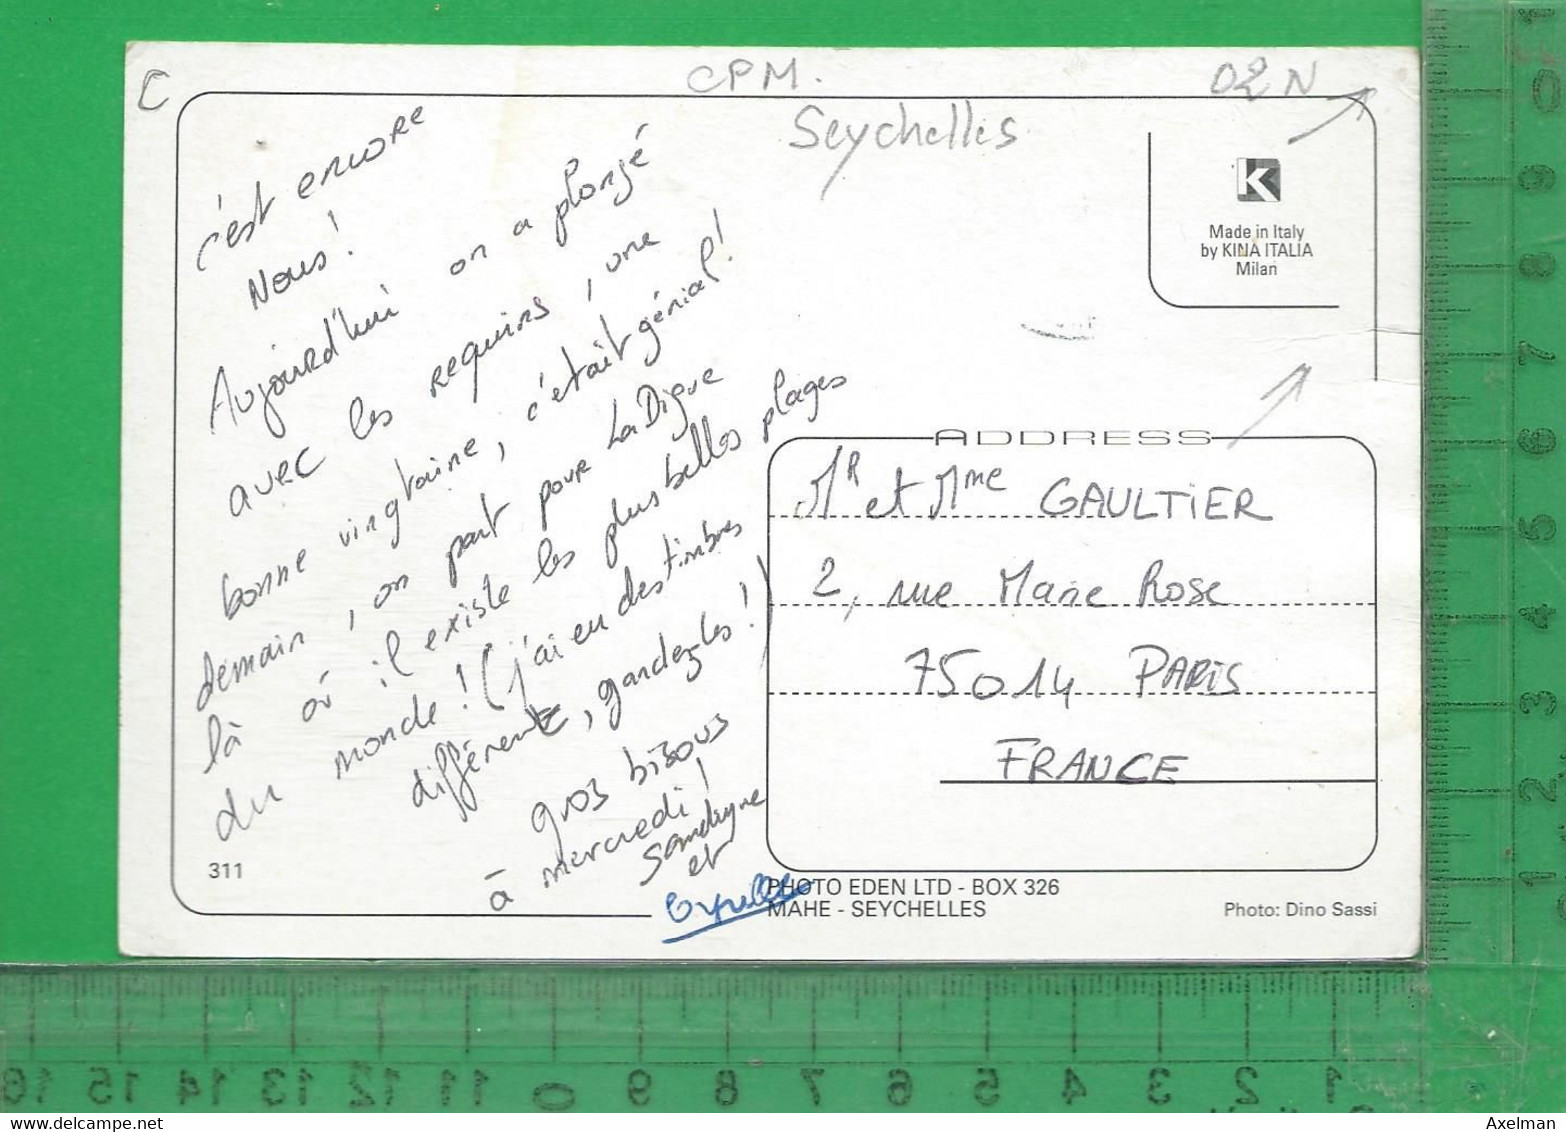 C
CPM.
02 N
Seychelles
c'est encore
Nous!
Aujourd'hui on a plongé
avec les requins, une
bonne vingtaine, c'était génial!
demain, on part pour La Digue
là où il existe les plus belles plages
du monde! (j'ai eu des timbres
différents, gardez-les!)
gros bisous
à mercredi!
Sandryne
et
Cyrille
311
K
Made in Italy
by KINA ITALIA
Milan
ADDRESS
Mr et Mme GAULTIER
2, rue Marie Rose
75014 PARIS
FRANCE
PHOTO EDEN LTD - BOX 326
MAHE - SEYCHELLES
Photo: Dino Sassi
0
1
2
3
4
5
6
7
8
9
10
16 15 14 13 12 11 10 9 8 7 6 5 4 3 2 1
www.delcampe.net
Axelman